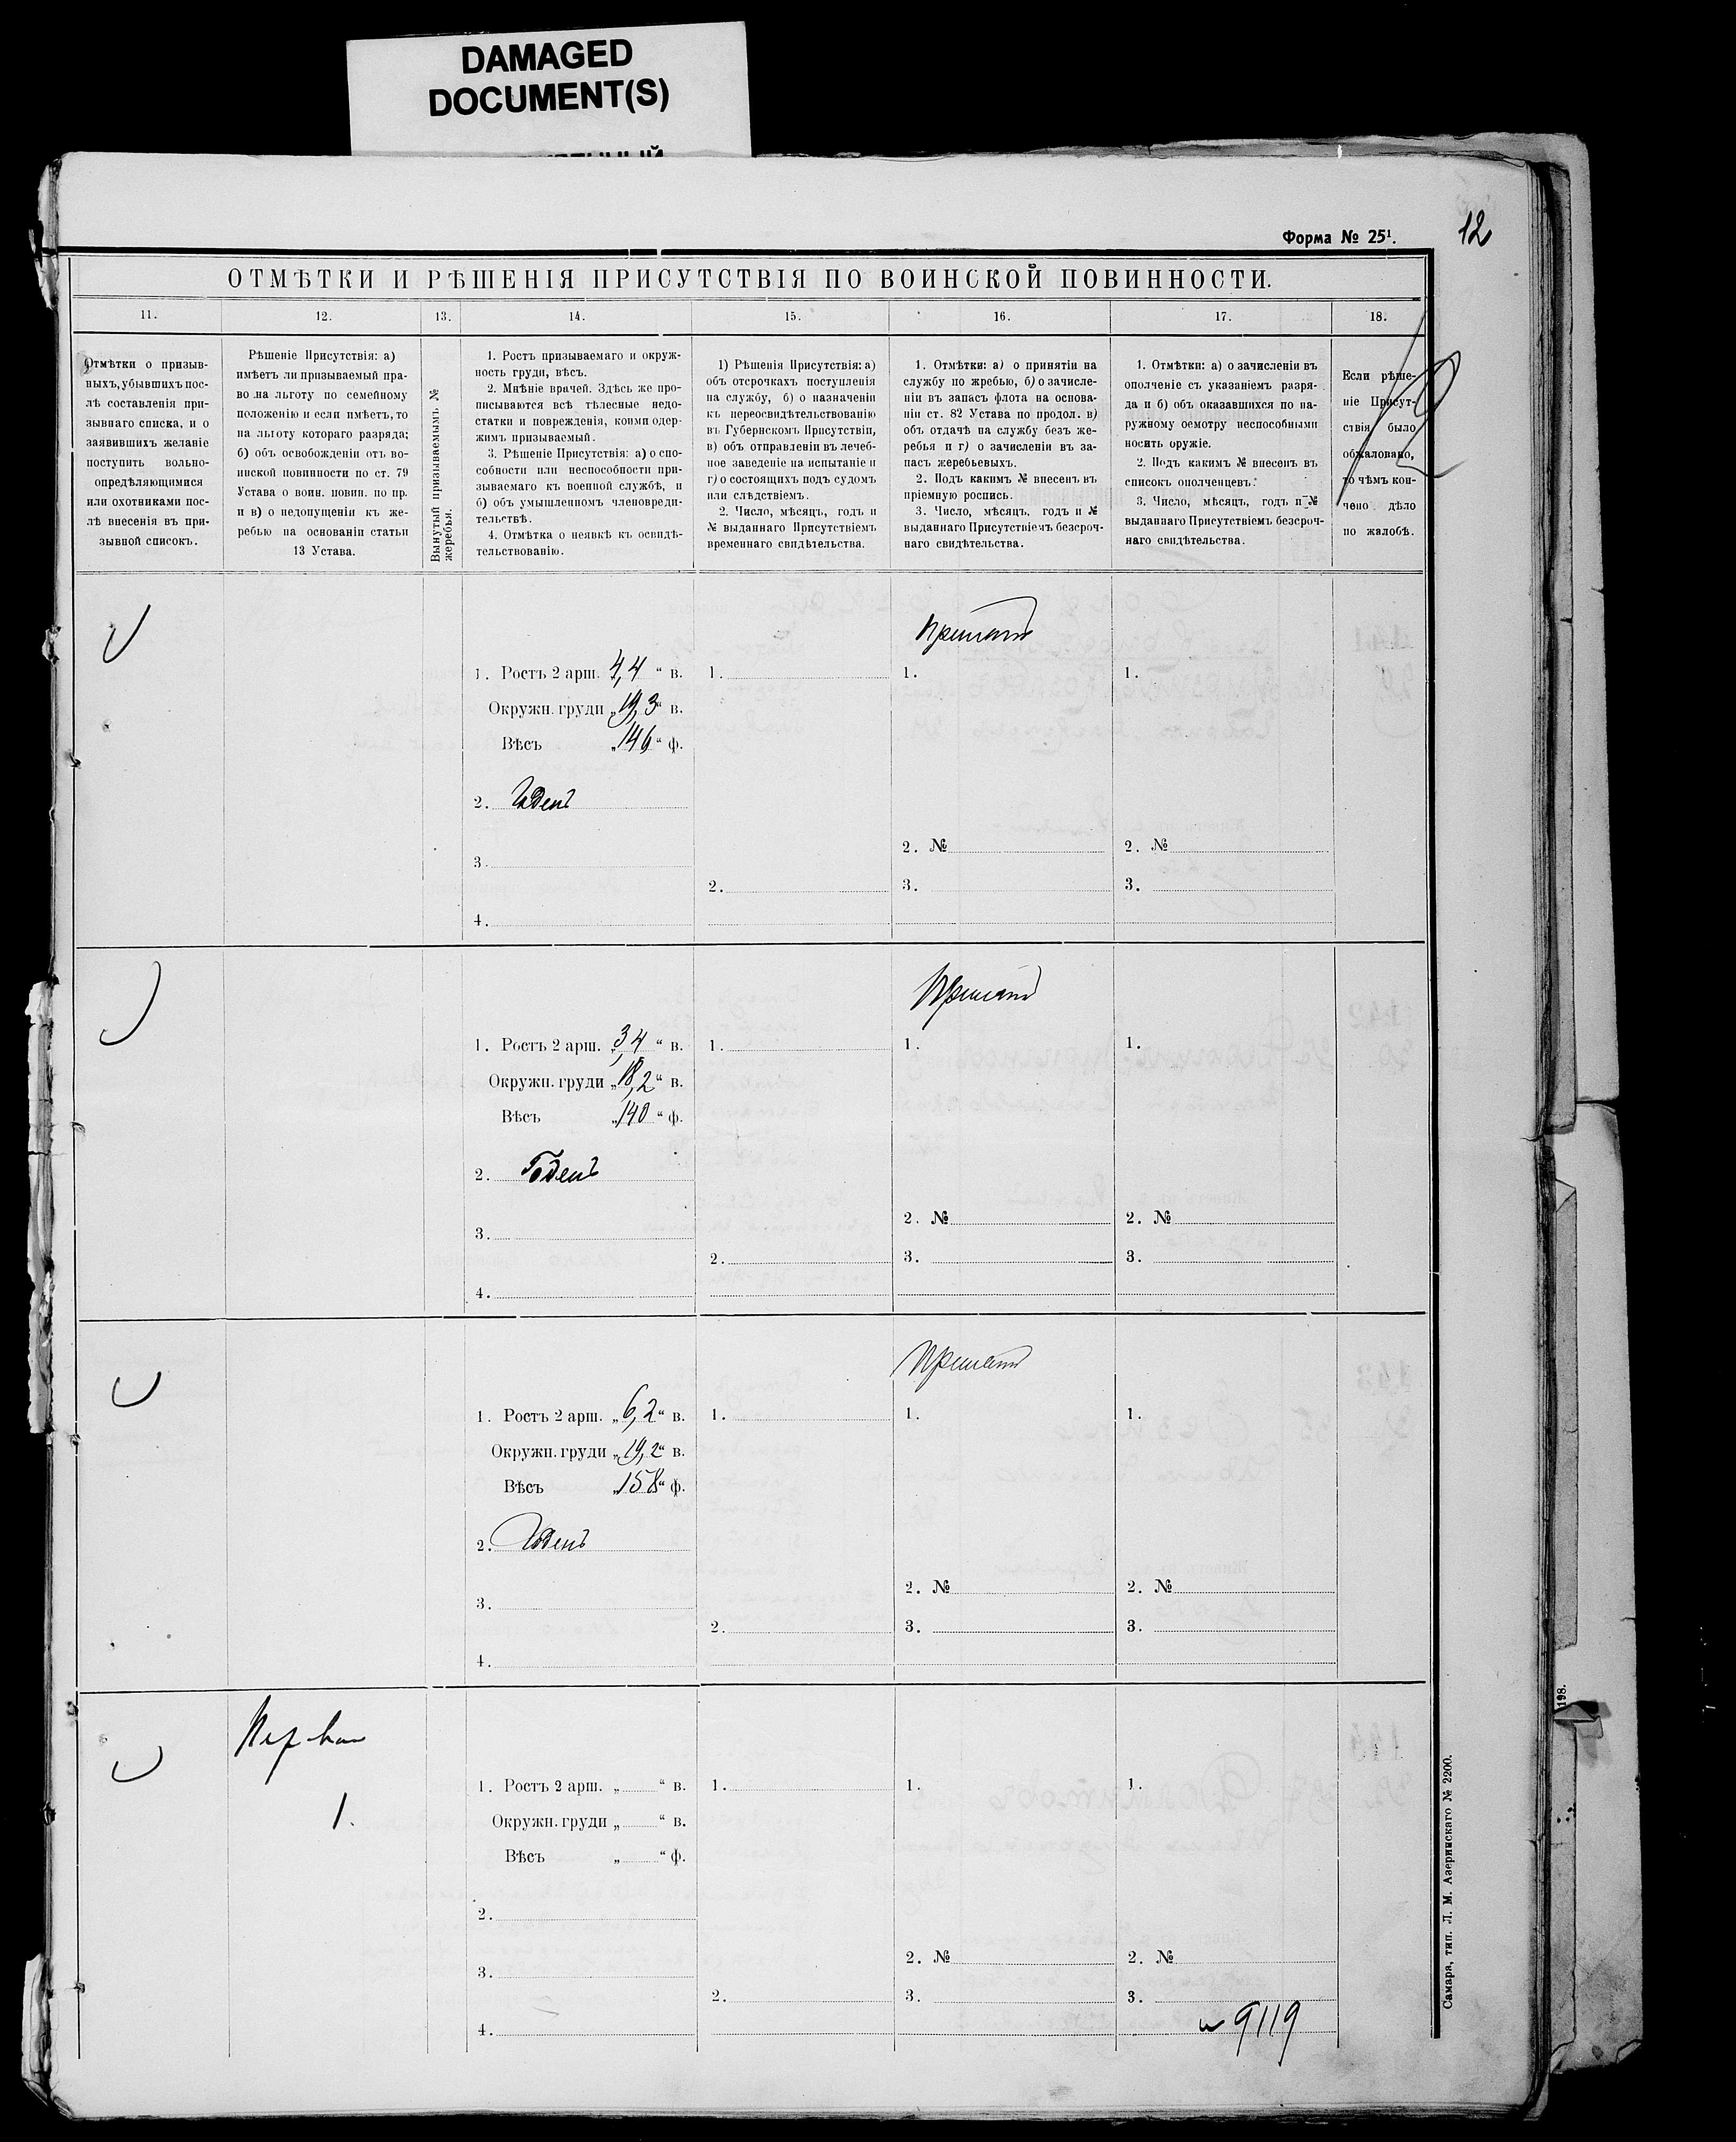 DAMAGED
DOCUMENT(S)
12
Форма № 25¹.
ОТМѢТКИ И РѢШЕНІЯ ПРИСУТСТВІЯ ПО ВОИНСКОЙ ПОВИННОСТИ.
11. 12. 13. 14. 15. 16. 17. 18.
Отмѣтки о призыв-
ныхъ, убывшихъ пос-
лѣ составленія при-
зывнаго списка, и о
заявившихъ желаніе
поступить вольно-
опредѣляющимися
или охотниками пос-
лѣ внесенія въ при-
зывной списокъ.
Рѣшеніе Присутствія: а)
имѣетъ ли призываемый пра-
во на льготу по семейному
положенію и если имѣетъ, то
на льготу котораго разряда;
б) объ освобожденіи отъ во-
инской повинности по ст. 79
Устава о воин. повин. по пр.
и в) о недопущеніи къ же-
ребью на основаніи статьи
13 Устава.
Вынутый призываемымъ №
жеребья.
1. Ростъ призываемаго и окруж-
ность груди, вѣсъ.
2. Мнѣніе врачей. Здѣсь же про-
писываются всѣ тѣлесные недо-
статки и поврежденія, коими одер-
жимъ призываемый.
3. Рѣшеніе Присутствія: а) о спо-
собности или неспособности при-
зываемаго къ военной службѣ, и
б) объ умышленномъ членовреди-
тельствѣ.
4. Отмѣтка о неявкѣ къ освидѣ-
тельствованію.
1) Рѣшенія Присутствія: а)
объ отсрочкахъ поступленія
на службу, б) о назначеніи
къ переосвидѣтельствованію
въ Губернскомъ Присутствіи,
в) объ отправленіи въ лечеб-
ное заведеніе на испытаніе и
г) о состоящихъ подъ судомъ
или слѣдствіемъ.
2. Число, мѣсяцъ, годъ и
№ выданнаго Присутствіемъ
временнаго свидѣтельства.
1. Отмѣтки: а) о принятіи на
службу по жребью, б) о зачисле-
ніи въ запасъ флота на основа-
ніи ст. 82 Устава по продол. в)
объ отдачѣ на службу безъ же-
ребья и г) о зачисленіи въ за-
пасъ жеребьевыхъ.
2. Подъ какимъ № внесенъ въ
пріемную роспись.
3. Число, мѣсяцъ, годъ и №
выданнаго Присутствіемъ безсроч-
наго свидѣтельства.
1. Отмѣтки: а) о зачисленіи въ
ополченіе съ указаніемъ разря-
да и б) объ оказавшихся по на-
ружному осмотру неспособными
носить оружіе.
2. Подъ какимъ № внесенъ въ
списокъ ополченцевъ.
3. Число, мѣсяцъ, годъ и №
выданнаго Присутствіемъ безсроч-
наго свидѣтельства.
Если рѣше-
ніе Присут-
ствія было
обжаловано,
то чѣмъ кон-
чено дѣло
по жалобѣ.
Принятъ
1. Ростъ 2 арш. 4,4 " в. 1. 1. 1.
Окружн. груди „19,3" в.
Вѣсъ „146" ф.
2. Годенъ
2. № 2. №
3.
2. 3. 3.
4.
Принятъ
1. Ростъ 2 арш. 3,4 " в. 1. 1. 1.
Окружн. груди „18,2" в.
Вѣсъ „140" ф.
2. Годенъ
2. № 2. №
3.
2. 3. 3.
4.
Принятъ
1. Ростъ 2 арш. „6,2" в. 1. 1. 1.
Окружн. груди „19,2" в.
Вѣсъ „158" ф.
2. Годенъ
2. № 2. №
3.
2. 3. 3.
4.
1. Ростъ 2 арш. „ " в. 1. 1. 1.
1.
Окружн. груди „ " в.
Вѣсъ „ " ф.
2.
2. № 2. №
3.
2. 3. 3.
9119
4.
Самара, тип. Л. М. Азеринскаго № 2200.
198.